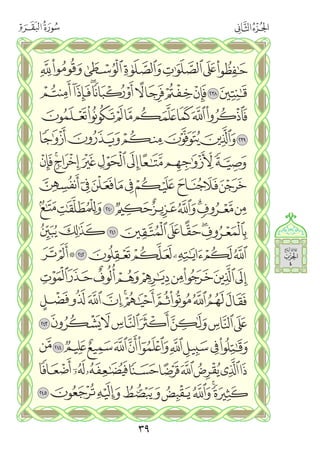 الجُزْءُ الثَّانِي سُورَةُ البَقَرَةِ
حَٰفِظُوا۟ عَلَى ٱلصَّلَوَٰتِ وَٱلصَّلَوٰةِ ٱلْوُسْطَىٰ وَقُومُوا۟ لِلَّهِ
قَٰنِتِينَ ٢٣٨ فَإِنْ خِفْتُمْ فَرِجَالًا أَوْ رُكْبَانًا فَإِذَآ أَمِنتُمْ
فَٱذْكُرُوا۟ ٱللَّهَ كَمَا عَلَّمَكُم مَّا لَمْ تَكُونُوا۟ تَعْلَمُونَ
٢٣٩ وَٱلَّذِينَ يُتَوَفَّوْنَ مِنكُمْ وَيَذَرُونَ أَزْوَٰجًا
وَصِيَّةً لِّأَزْوَٰجِهِم مَّتَٰعًا إِلَى ٱلْحَوْلِ غَيْرَ إِخْرَاجٍ فَإِنْ
خَرَجْنَ فَلَا جُنَاحَ عَلَيْكُمْ فِى مَا فَعَلْنَ فِىٓ أَنفُسِهِنَّ
مِن مَّعْرُوفٍ وَٱللَّهُ عَزِيزٌ حَكِيمٌ ٢٤٠ وَلِلْمُطَلَّقَٰتِ مَتَٰعٌۢ
بِٱلْمَعْرُوفِ حَقًّا عَلَى ٱلْمُتَّقِينَ ٢٤١ كَذَٰلِكَ يُبَيِّنُ
ٱللَّهُ لَكُمْ ءَايَٰتِهِۦ لَعَلَّكُمْ تَعْقِلُونَ ٢٤٢ ۞ أَلَمْ تَرَ
إِلَى ٱلَّذِينَ خَرَجُوا۟ مِن دِيَٰرِهِمْ وَهُمْ أُلُوفٌ حَذَرَ ٱلْمَوْتِ
فَقَالَ لَهُمُ ٱللَّهُ مُوتُوا۟ ثُمَّ أَحْيَٰهُمْ إِنَّ ٱللَّهَ لَذُو فَضْلٍ
عَلَى ٱلنَّاسِ وَلَٰكِنَّ أَكْثَرَ ٱلنَّاسِ لَا يَشْكُرُونَ ٢٤٣
وَقَٰتِلُوا۟ فِى سَبِيلِ ٱللَّهِ وَٱعْلَمُوٓا۟ أَنَّ ٱللَّهَ سَمِيعٌ عَلِيمٌ ٢٤٤ مَّن
ذَا ٱلَّذِى يُقْرِضُ ٱللَّهَ قَرْضًا حَسَنًا فَيُضَٰعِفَهُۥ لَهُۥٓ أَضْعَافًا
كَثِيرَةً وَٱللَّهُ يَقْبِضُ وَيَبْصُۜطُ وَإِلَيْهِ تُرْجَعُونَ ٢٤٥
٣٩